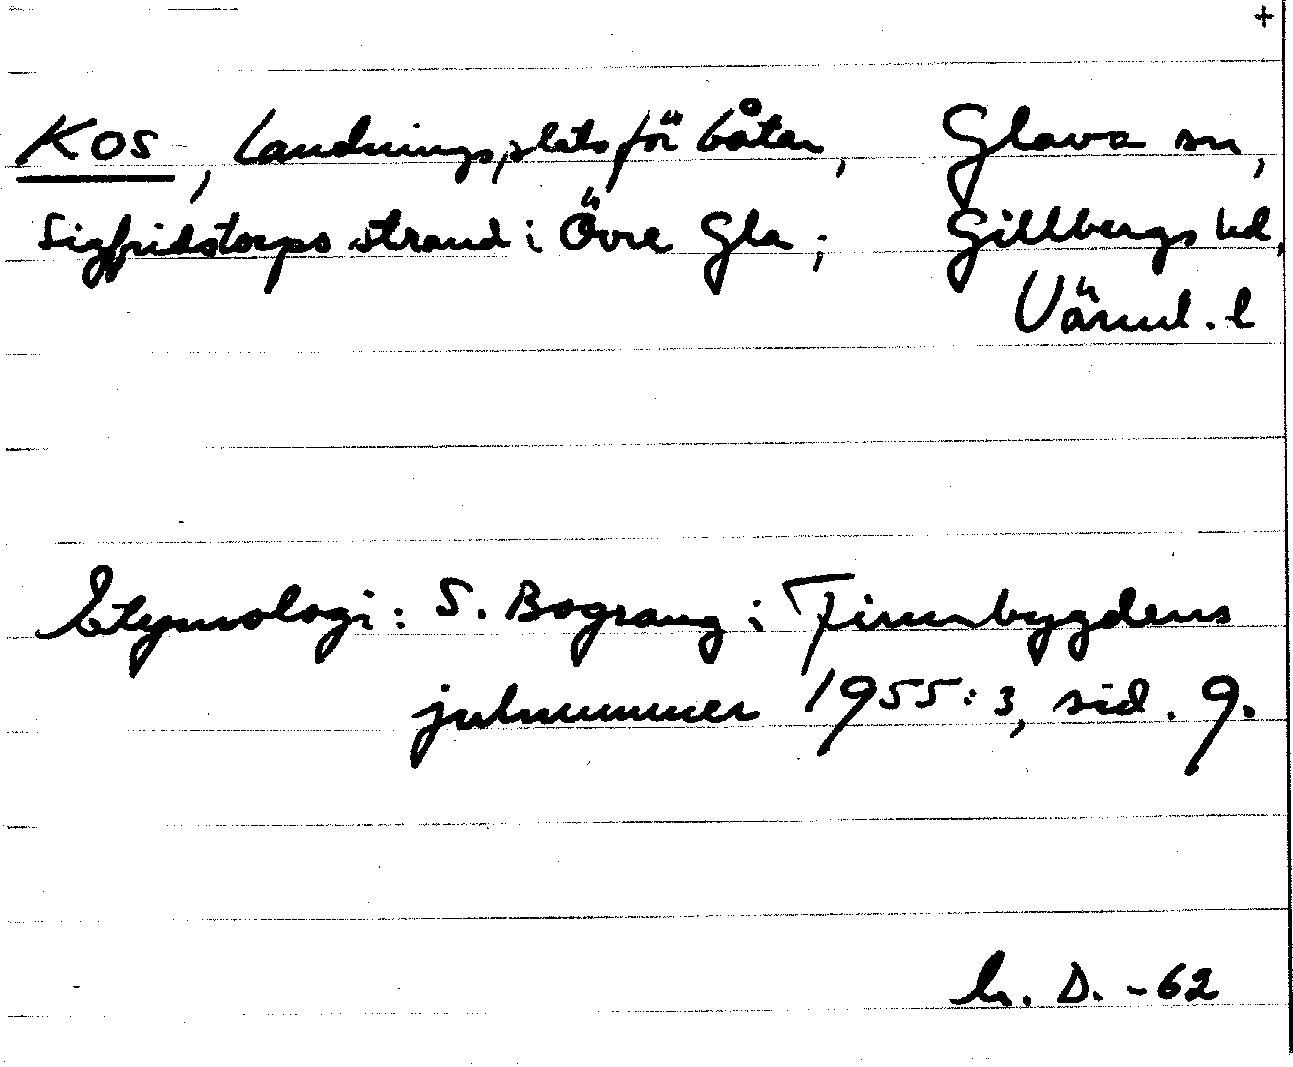 +
Kos, Landningsplats för båtar, Glava sn,
Sigfridstorps strand i Övre Gla; Gillbergs hd,
Värml. l
Etymologi: S. Bograng i Finnbygdens
julnummer 1955:3, sid. 9.
D. -62